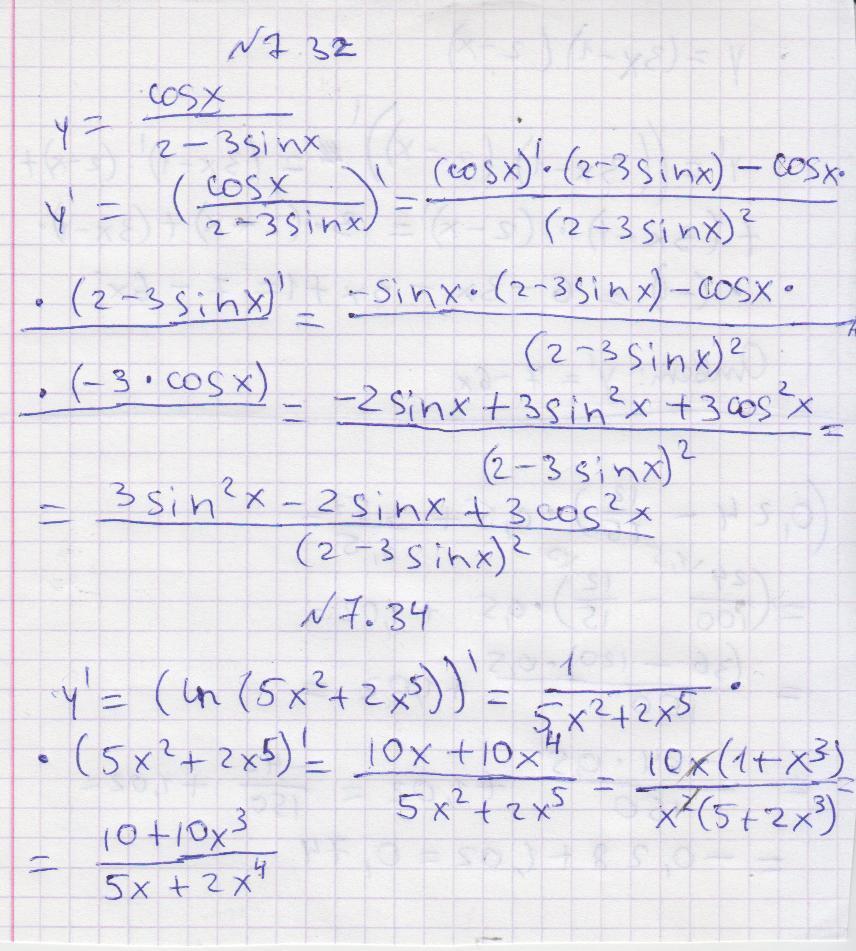 №7.32
y = cosx / (2-3sinx)
y' = (cosx / (2-3sinx))' = ((cosx)'·(2-3sinx) - cosx· / (2-3sinx)²
·(2-3sinx)' = -sinx·(2-3sinx) - cosx· / (2-3sinx)²
·(-3·cosx) = (-2sinx + 3sin²x + 3cos²x) / (2-3sinx)² =
= (3sin²x - 2sinx + 3cos²x) / (2-3sinx)²
№7.34
y' = (ln(5x²+2x⁵))' = 1 / (5x²+2x⁵) ·
·(5x²+2x⁵)' = (10x+10x⁴) / (5x²+2x⁵) = 10x(1+x³) / x²(5+2x³) =
= (10+10x³) / (5x+2x⁴)